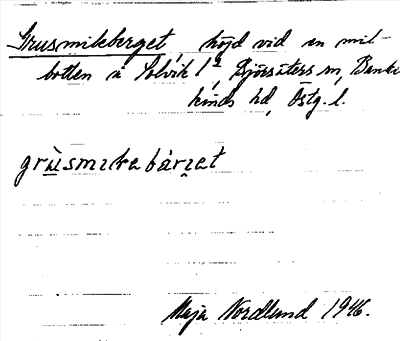 Grusmileberget, höjd vid en mil-
botten å Solvik 1⁴, Björsäters sn, Banke-
kinds hd, Östg. l.
grùsmɩlebàrɩ̣et
Maja Nordlund 1946.